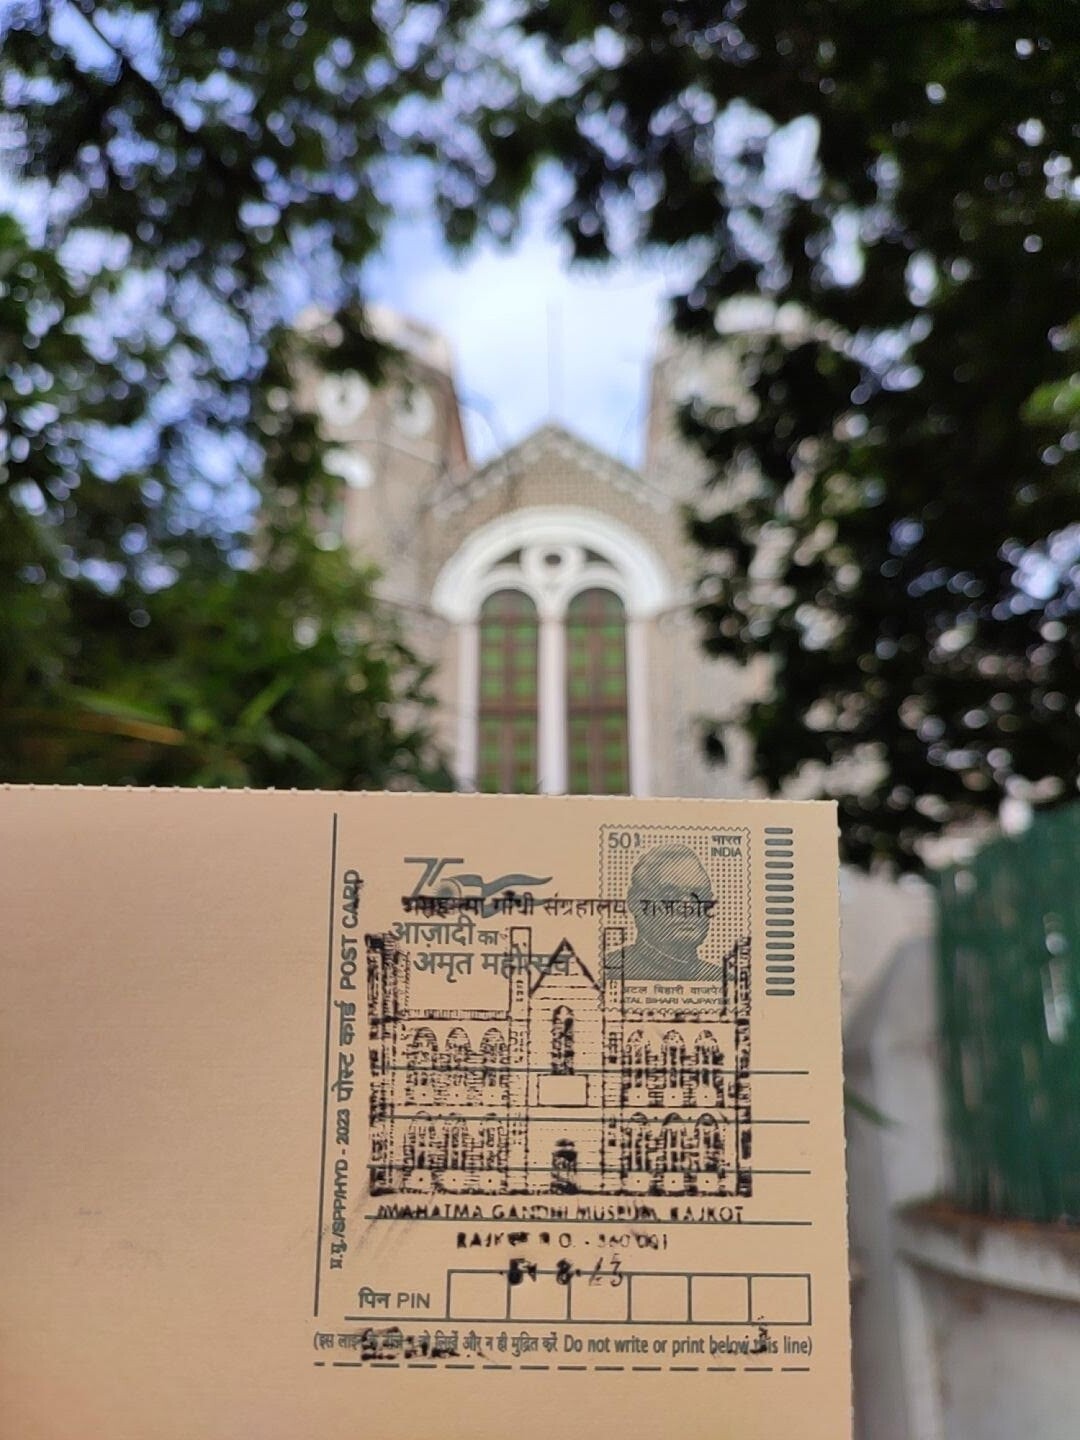 75
आज़ादी का
अमृत महोत्सव
50
भारत
INDIA
अटल बिहारी वाजपेयी
ATAL BIHARI VAJPAYEE
महात्मा गाँधी संग्रहालय राजकोट
POST CARD
पोस्ट कार्ड
प्र.मु./SPP/HYD - 2023
MAHATMA GANDHI MUSEUM, RAJKOT
RAJKOT H.O. - 360 001
पिन PIN
(इस लाइन के नीचे न तो लिखें और न ही मुद्रित करें Do not write or print below this line)